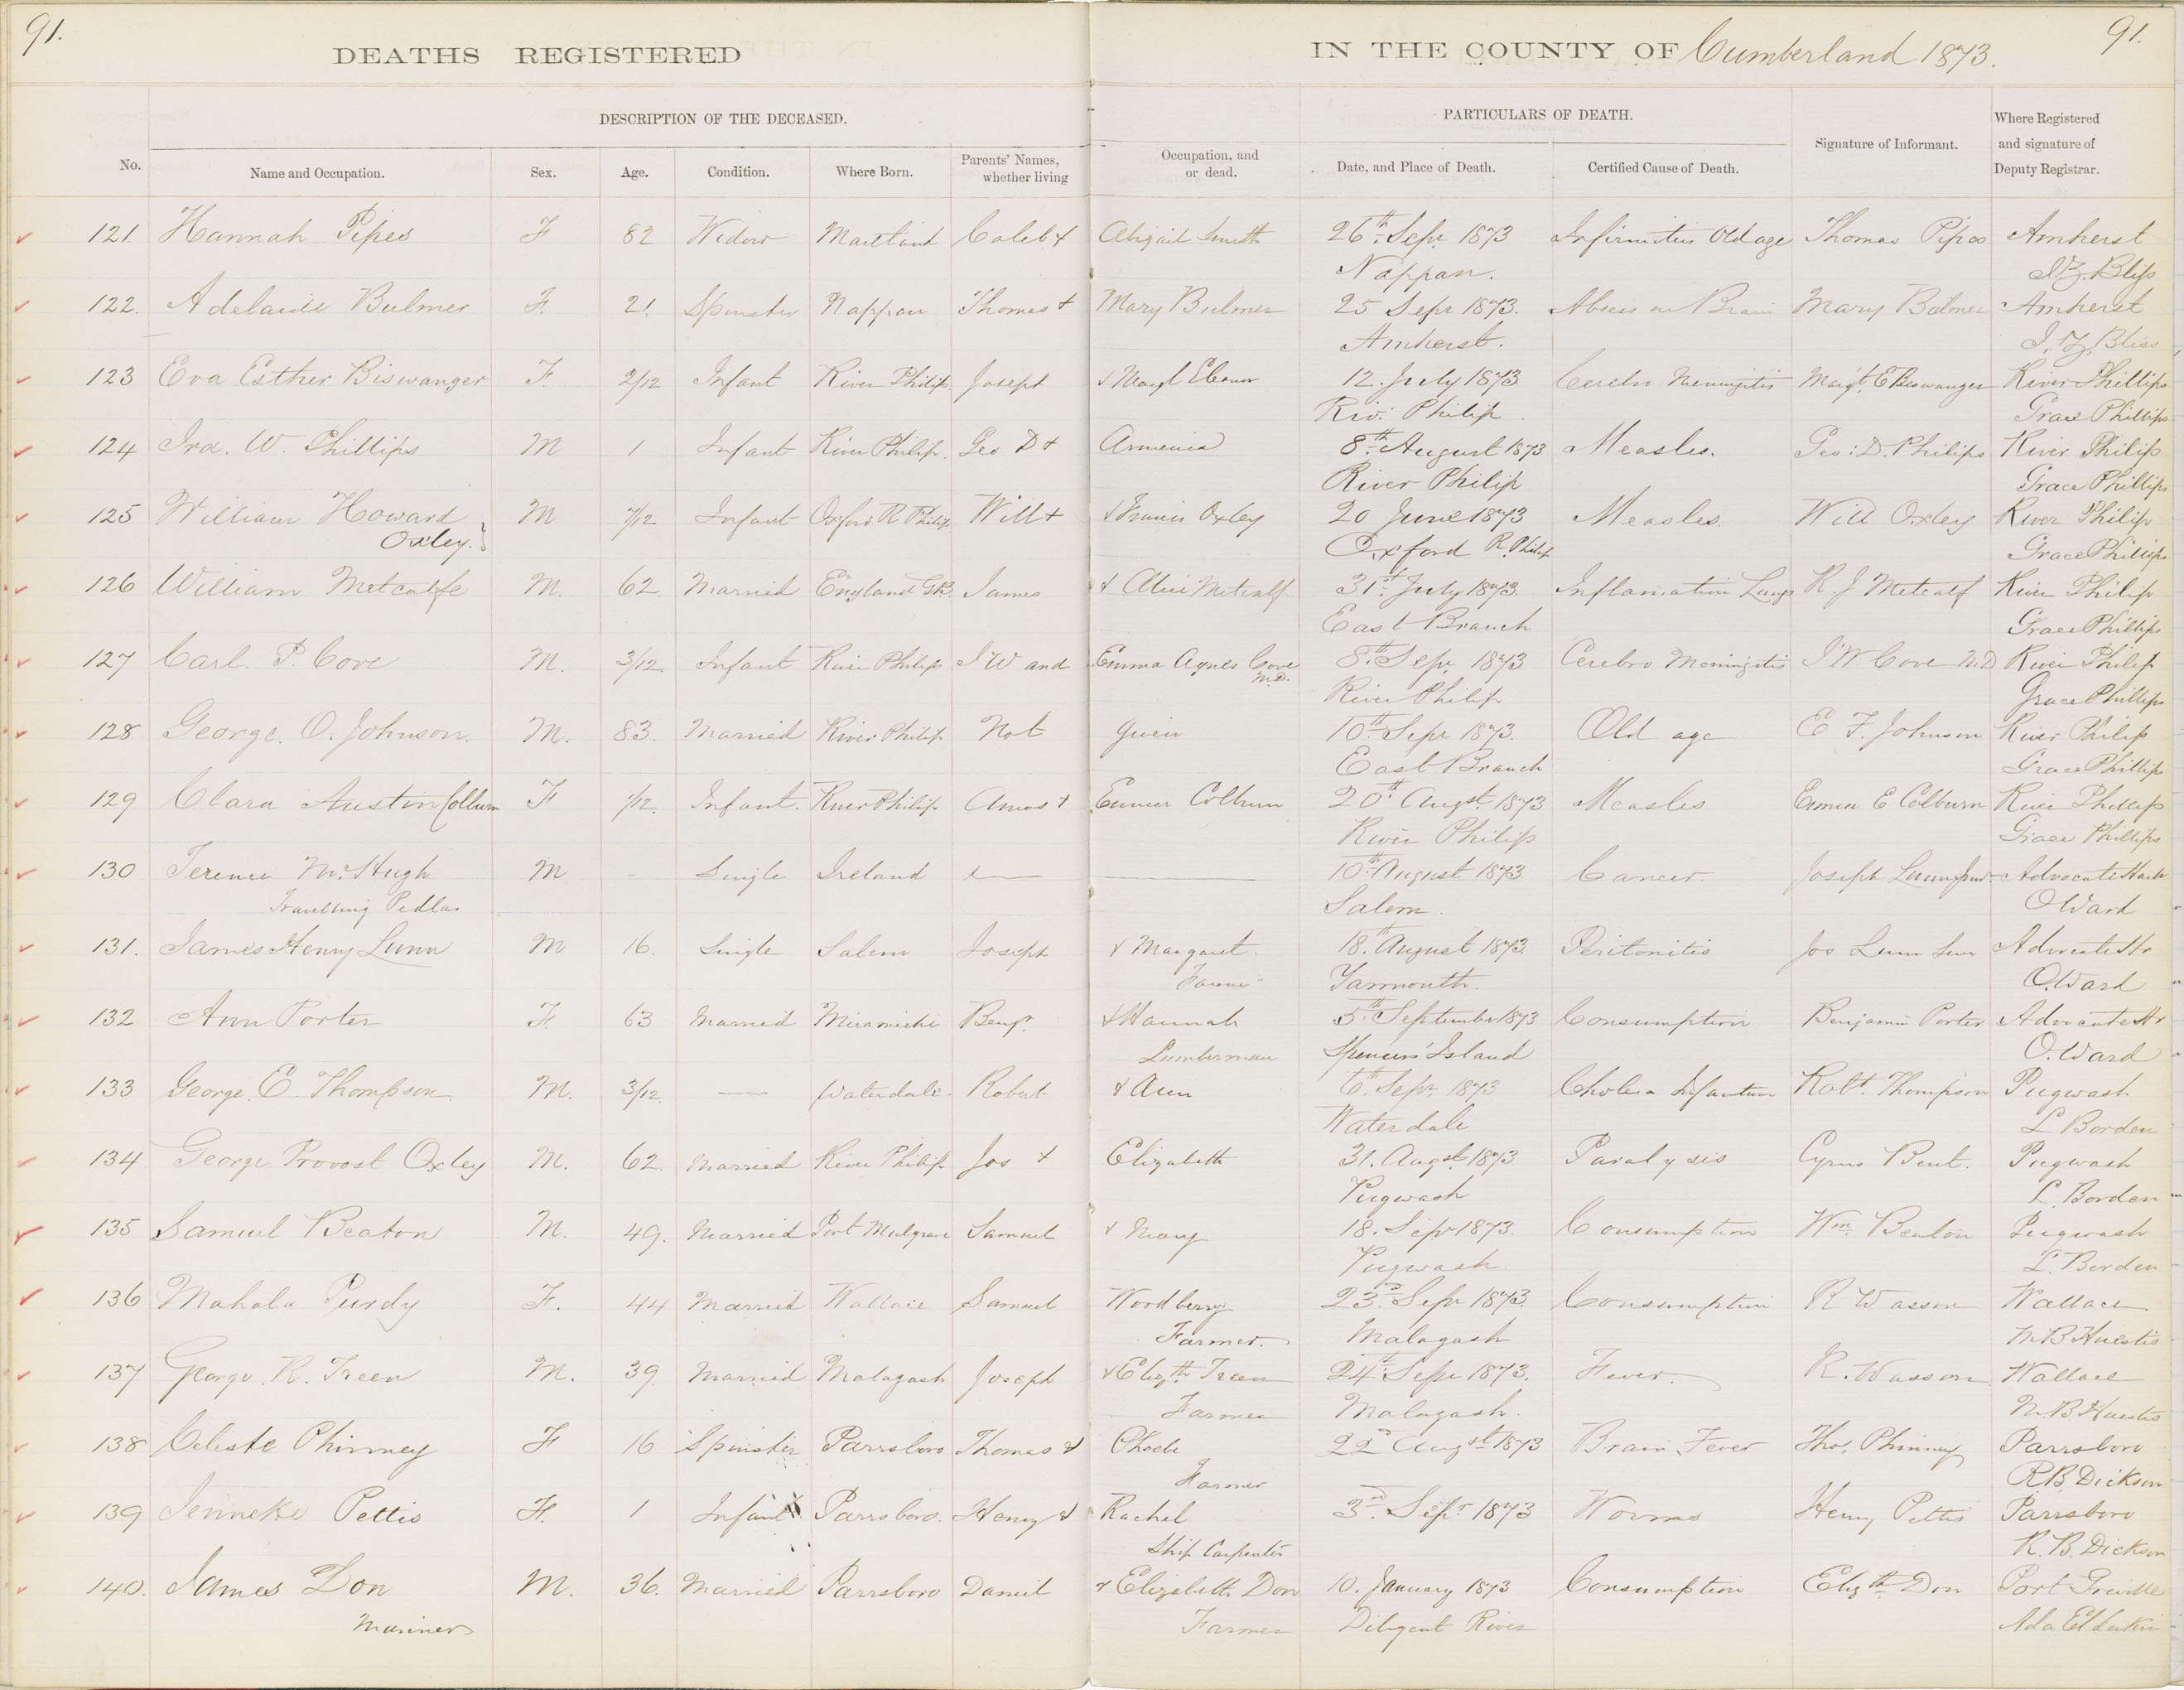 91.
DEATHS REGISTERED IN THE COUNTY OF Cumberland 1873.
91.
DESCRIPTION OF THE DECEASED.
PARTICULARS OF DEATH.
No.
Name and Occupation.
Sex.
Age.
Condition.
Where Born.
Parents' Names, whether living
Occupation, and or dead.
Date, and Place of Death.
Certified Cause of Death.
Signature of Informant.
Where Registered and signature of Deputy Registrar.
121. Hannah Pipes F 82 Widow Maitland Caleb & Abigail Smith 26th Sepr 1873 Infirmities Old age Thomas Pipes Amherst
Nappan. Bliss
122. Adelaide Bulmer F. 21. Spinster Nappan Thomas & Mary Bulmer 25 Sepr 1873. Abscess on Brain Mary Bulmer Amherst
Amherst. Bliss
123 Eva Esther Biswanger F. 2/12 Infant River Philip Joseph & Margt Eleanor 12. July 1873 Cerebro Meningitis Margt. E Biswanger River Phillips
Riv: Philip Grace Phillips
124 Ira. W. Phillips M 1 Infant River Philip. Geo D & Armenia 8th August 1873 Measles. Geo: D. Philips River Philip
River Philip Grace Phillips
125 William Howard M 7/12 Infant Oxford R Philip Will & & Francis Oxley 20 June 1873 Measles. Will Oxley River Philip
Oxley. Oxford R. Philip Grace Phillips
126 William Metcalfe M. 62 Married England GB. James & Alice Metcalf 31st July 1873. Inflamation Lungs R. J Metcalf River Philip
East Branch Grace Phillips
127 Carl. P. Cove M. 3/12. Infant River Philip J W and Emma Agnes Cove 8th Sepr 1873 Cerebro Meningitis J W Cove M.D River Philip
M.D. River Philip Grace Phillips
128 George. O. Johnson. M. 83. Married River Philip Not given 10th Sepr 1873. Old age E F. Johnson River Philip
East Branch Grace Phillips
129 Clara Austin Colburn F 1/12. Infant. River Philip Amos & Emma Colburn 20th Augst. 1873 Measles Emma E Colburn River Phillip
River Philip Grace Phillips
130 Terence McHugh M - Single Ireland 10th August 1873. Cancer. Joseph Lunn Advocate Harb
Travelling Pedlar Salem. O Ward
131. James Henry Lunn M 16. Single Salem Joseph & Margaret. 18th August 1873 Peritonitis Jos Lunn Senr Advocate Hr
Farmer Yarmouth. O.Ward
132 Ann Porter F. 63 Married Miramichi Benjn. & Hannah 5th September 1873 Consumption Benjamin Porter Advocate Hr
Lumberman Spencers Island O. Ward
133 George. E Thompson. M. 3/12 Waterdale Robert & Ann 6th Sepr 1873 Cholera Infantum Robt. Thompson Pugwash
Waterdale L Borden
134 George Provost Oxley M. 62 Married River Philip Jos & Elizabeth 31. Augst. 1873 Paralysis Cyrus Bent. Pugwash
Pugwash L. Borden
135 Samuel Beaton M. 49. Married Port Mulgrave Samuel & Mary 18. Sepr 1873. Consumption Wm. Beaton Pugwash
Pugwash. L. Borden
136 Mahala Purdy F. 44 Married Wallace Samuel Woodberry 23d Sepr 1873. Consumption R Wasson Wallace
Farmer. Malagash M B Huestis
137 George. R. Treen M. 39 Married Malagash Joseph & Elizth Treen 24th Sepr 1873. Fever. R. Wasson Wallace
Farmer Malagash. M. B. Huestis
138 Celeste Phinney F 16 Spinster Parrsboro Thomas & Phoebe 22d Augst 1873 Brain Fever Thos. Phinney Parrsboro
Farmer R.B. Dickson
139 Jennette Pettis F. 1 Infant Parrsboro. Henry & Rachel 3rd Sepr 1873 Worms Henry Pettis Parrsboro
Ship Carpenter R. B. Dickson
140. James Don M. 36. Married Parrsboro Daniel & Elizebeth Don 10. January 1873 Consumption Elizth Don Port Greville
Mariner Farmer Diligent River Ada